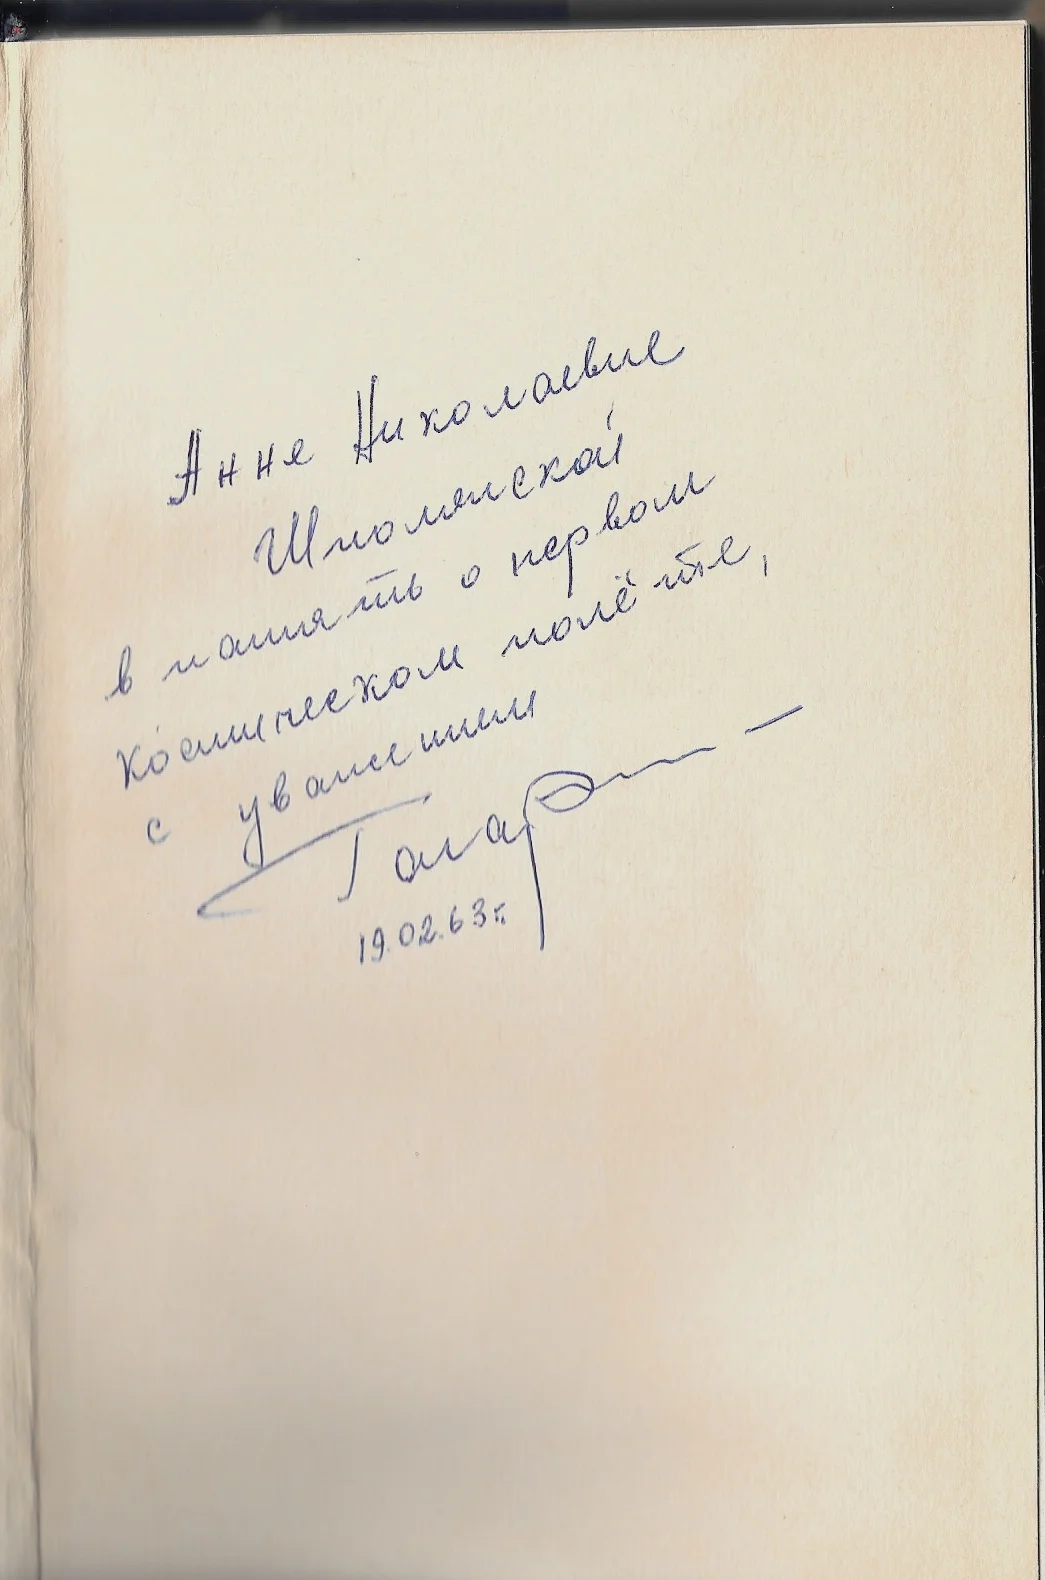 Анне Николаевне
Шполянской
в память о первом
космическом полёте,
с уважением
Гагарин
19.02.63г.